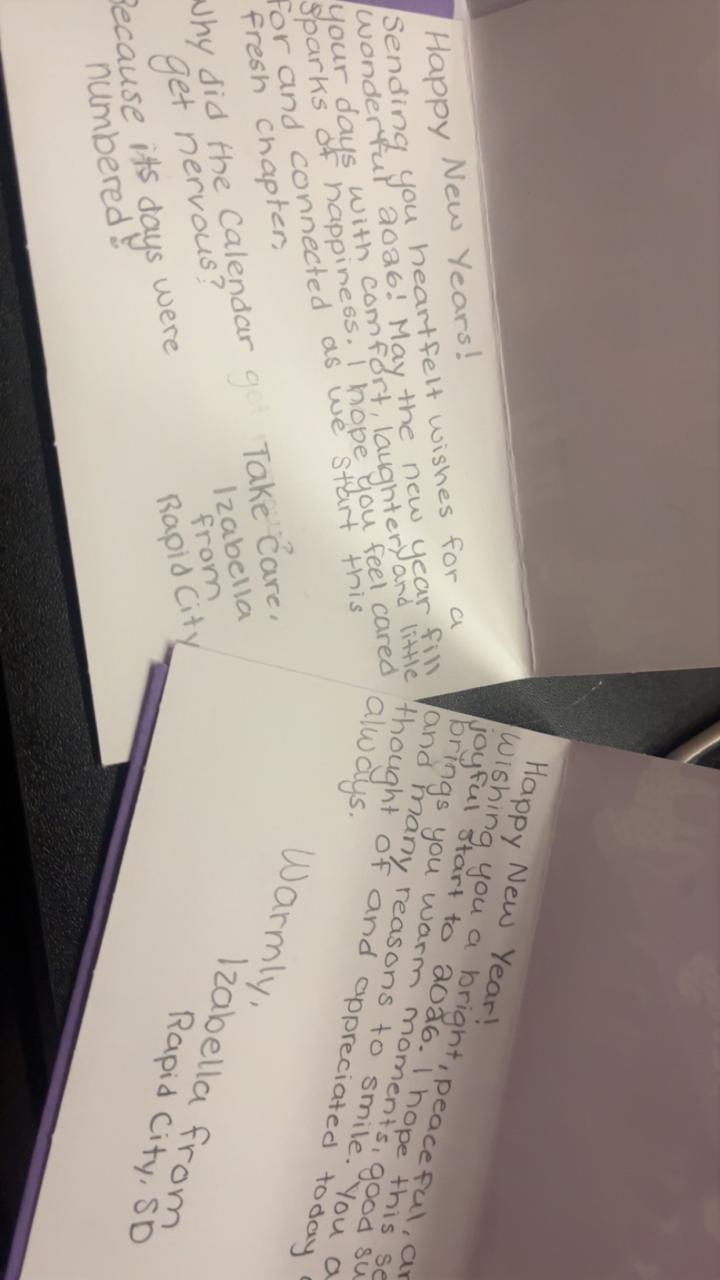 Happy New Years!
Sending you heartfelt wishes for a
wonderful 2026! May the new year fill
your days with comfort, laughter, and little
sparks of happiness. I hope you feel cared
for and connected as we start this
fresh chapter.
Why did the calendar get
get nervous?
Because its days were
numbered!
Take care,
Izabella
from
Rapid City
Happy New Year!
Wishing you a bright, peaceful,
joyful start to 2026. I hope this
brings you warm moments, good
and many reasons to smile. You
thought of and appreciated today
always.
Warmly,
Izabella from
Rapid City, SD